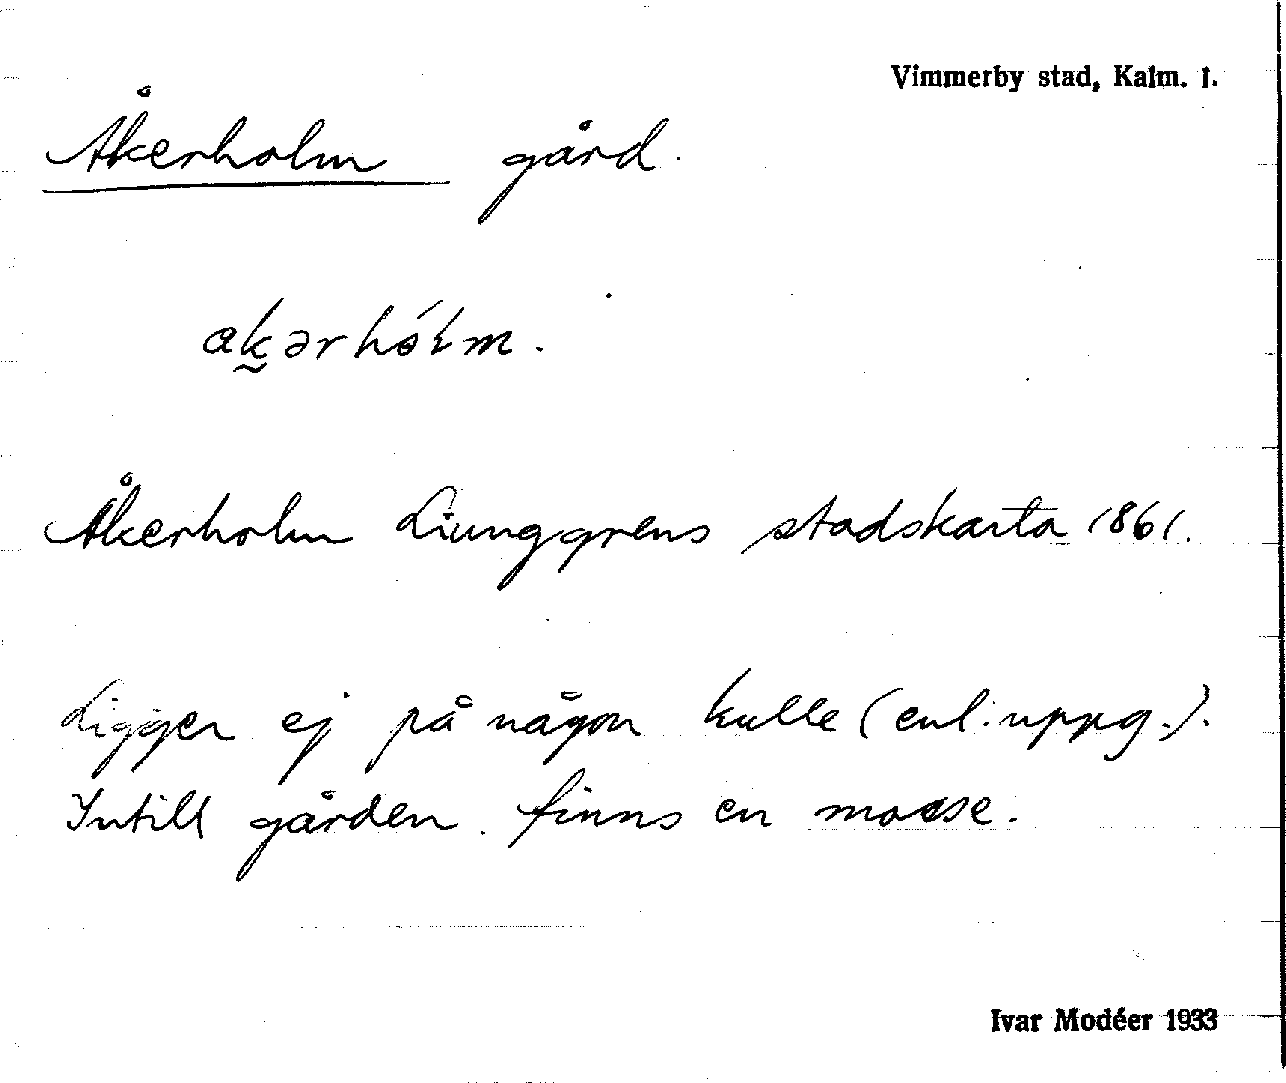 Vimmerby stad, Kalm. l.
Åkerholm gård.
ak̰ərhólm.
Åkerholm Liunggrens stadskarta 1861.
Ligger ej på någon kulle (enl. uppg.).
Intill gården finns en mosse.
Ivar Modéer 1933